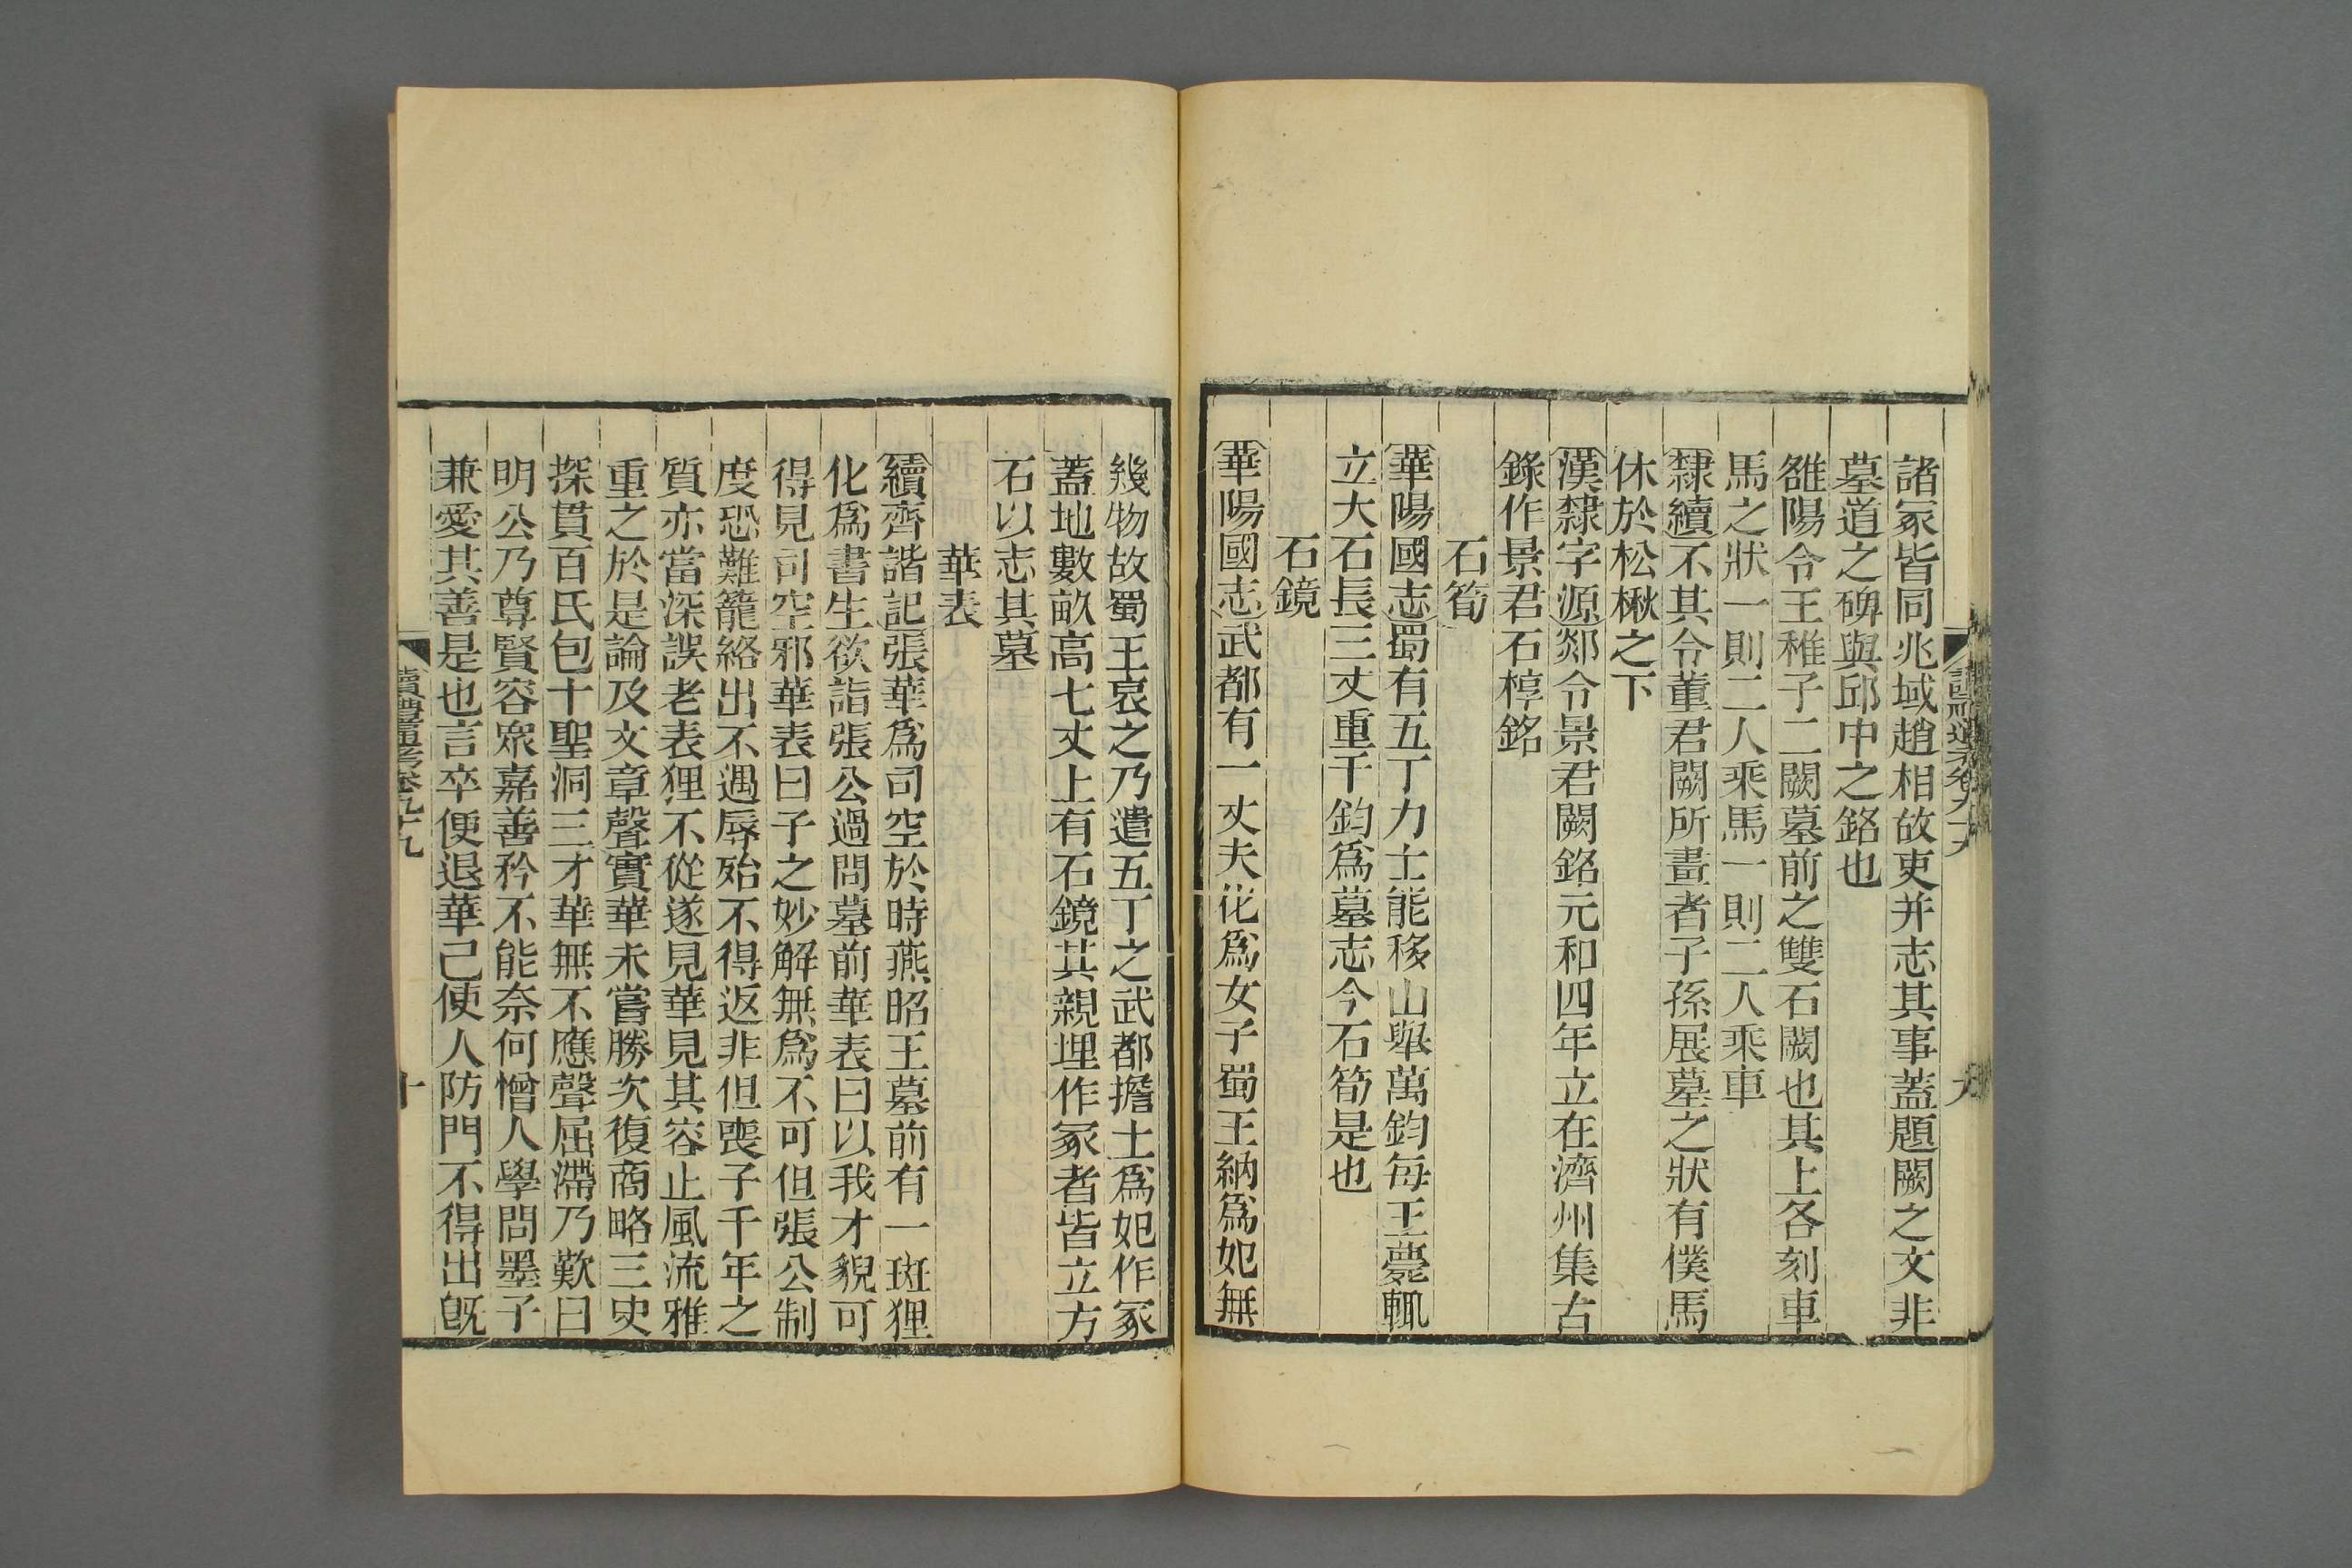 諸冢皆同兆域趙相故吏并志其事蓋題闕之文非
墓道之碑與邱中之銘也
雒陽令王稚子二闕墓前之雙石闕也其上各刻車
馬之狀一則二人乘馬一則二人乘車
隸續不其令董君闕所畫者子孫展墓之狀有僕馬
休於松楸之下
漢隸字源郯令景君闕銘元和四年立在濟州集古
錄作景君石椁銘
石筍
華陽國志蜀有五丁力士能移山舉萬鈞每王薨輒
立大石長三丈重千鈞爲墓志今石筍是也
石鏡
華陽國志武都有一丈夫花爲女子蜀王納爲妃無
幾物故蜀王哀之乃遣五丁之武都擔土爲妃作冢
蓋地數畝高七丈上有石鏡其親埋作冢者皆立方
石以志其墓
華表
續齊諧記張華爲司空於時燕昭王墓前有一斑狸
化爲書生欲詣張公過問墓前華表曰以我才貌可
得見司空邪華表曰子之妙解無爲不可但張公制
度恐難籠絡出不遇辱殆不得返非但喪子千年之
質亦當深誤老表狸不從遂見華見其容止風流雅
重之於是論及文章聲實華未嘗勝次復商略三史
探貫百氏包十聖洞三才華無不應聲屈滯乃歎曰
明公乃尊賢容衆嘉善矜不能奈何憎人學問墨子
兼愛其善是也言卒便退華己使人防門不得出旣
讀禮通考卷九十九
十